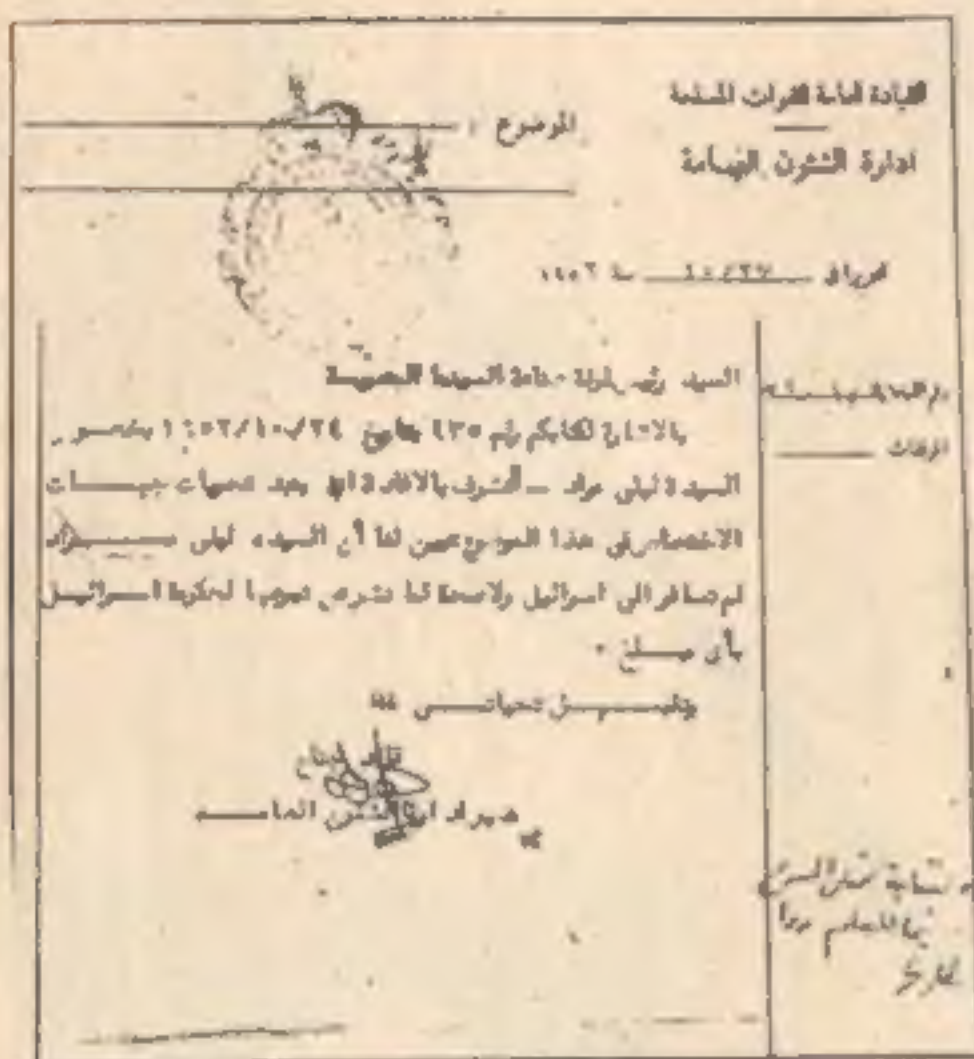 القيادة العامة للقوات المسلحة
ادارة الشئون العامة
الموضوع :
تحريرا في ١٠/٢٧ سنة ١٩٥٢
المرفقات
السيد رئيس غرفة صناعة السينما المصرية
بالاشارة لكتابكم رقم ٤٣٥ بتاريخ ١٩٥٢/١٠/٢٤ بخصوص
السيدة ليلى مراد ــ أتشرف بالافادة انه بعد تحريات جهات
الاختصاص فى هذا الموضوع تبين لنا أن السيده ليلى مراد
لم تسافر الى اسرائيل ولاصحة لما نشر عن تبرعها لحكومة اسرائيل
بأى مبلغ ٠
وتفضلوا تحياتى
قائد جناح
مدير ادارة الشئون العامه